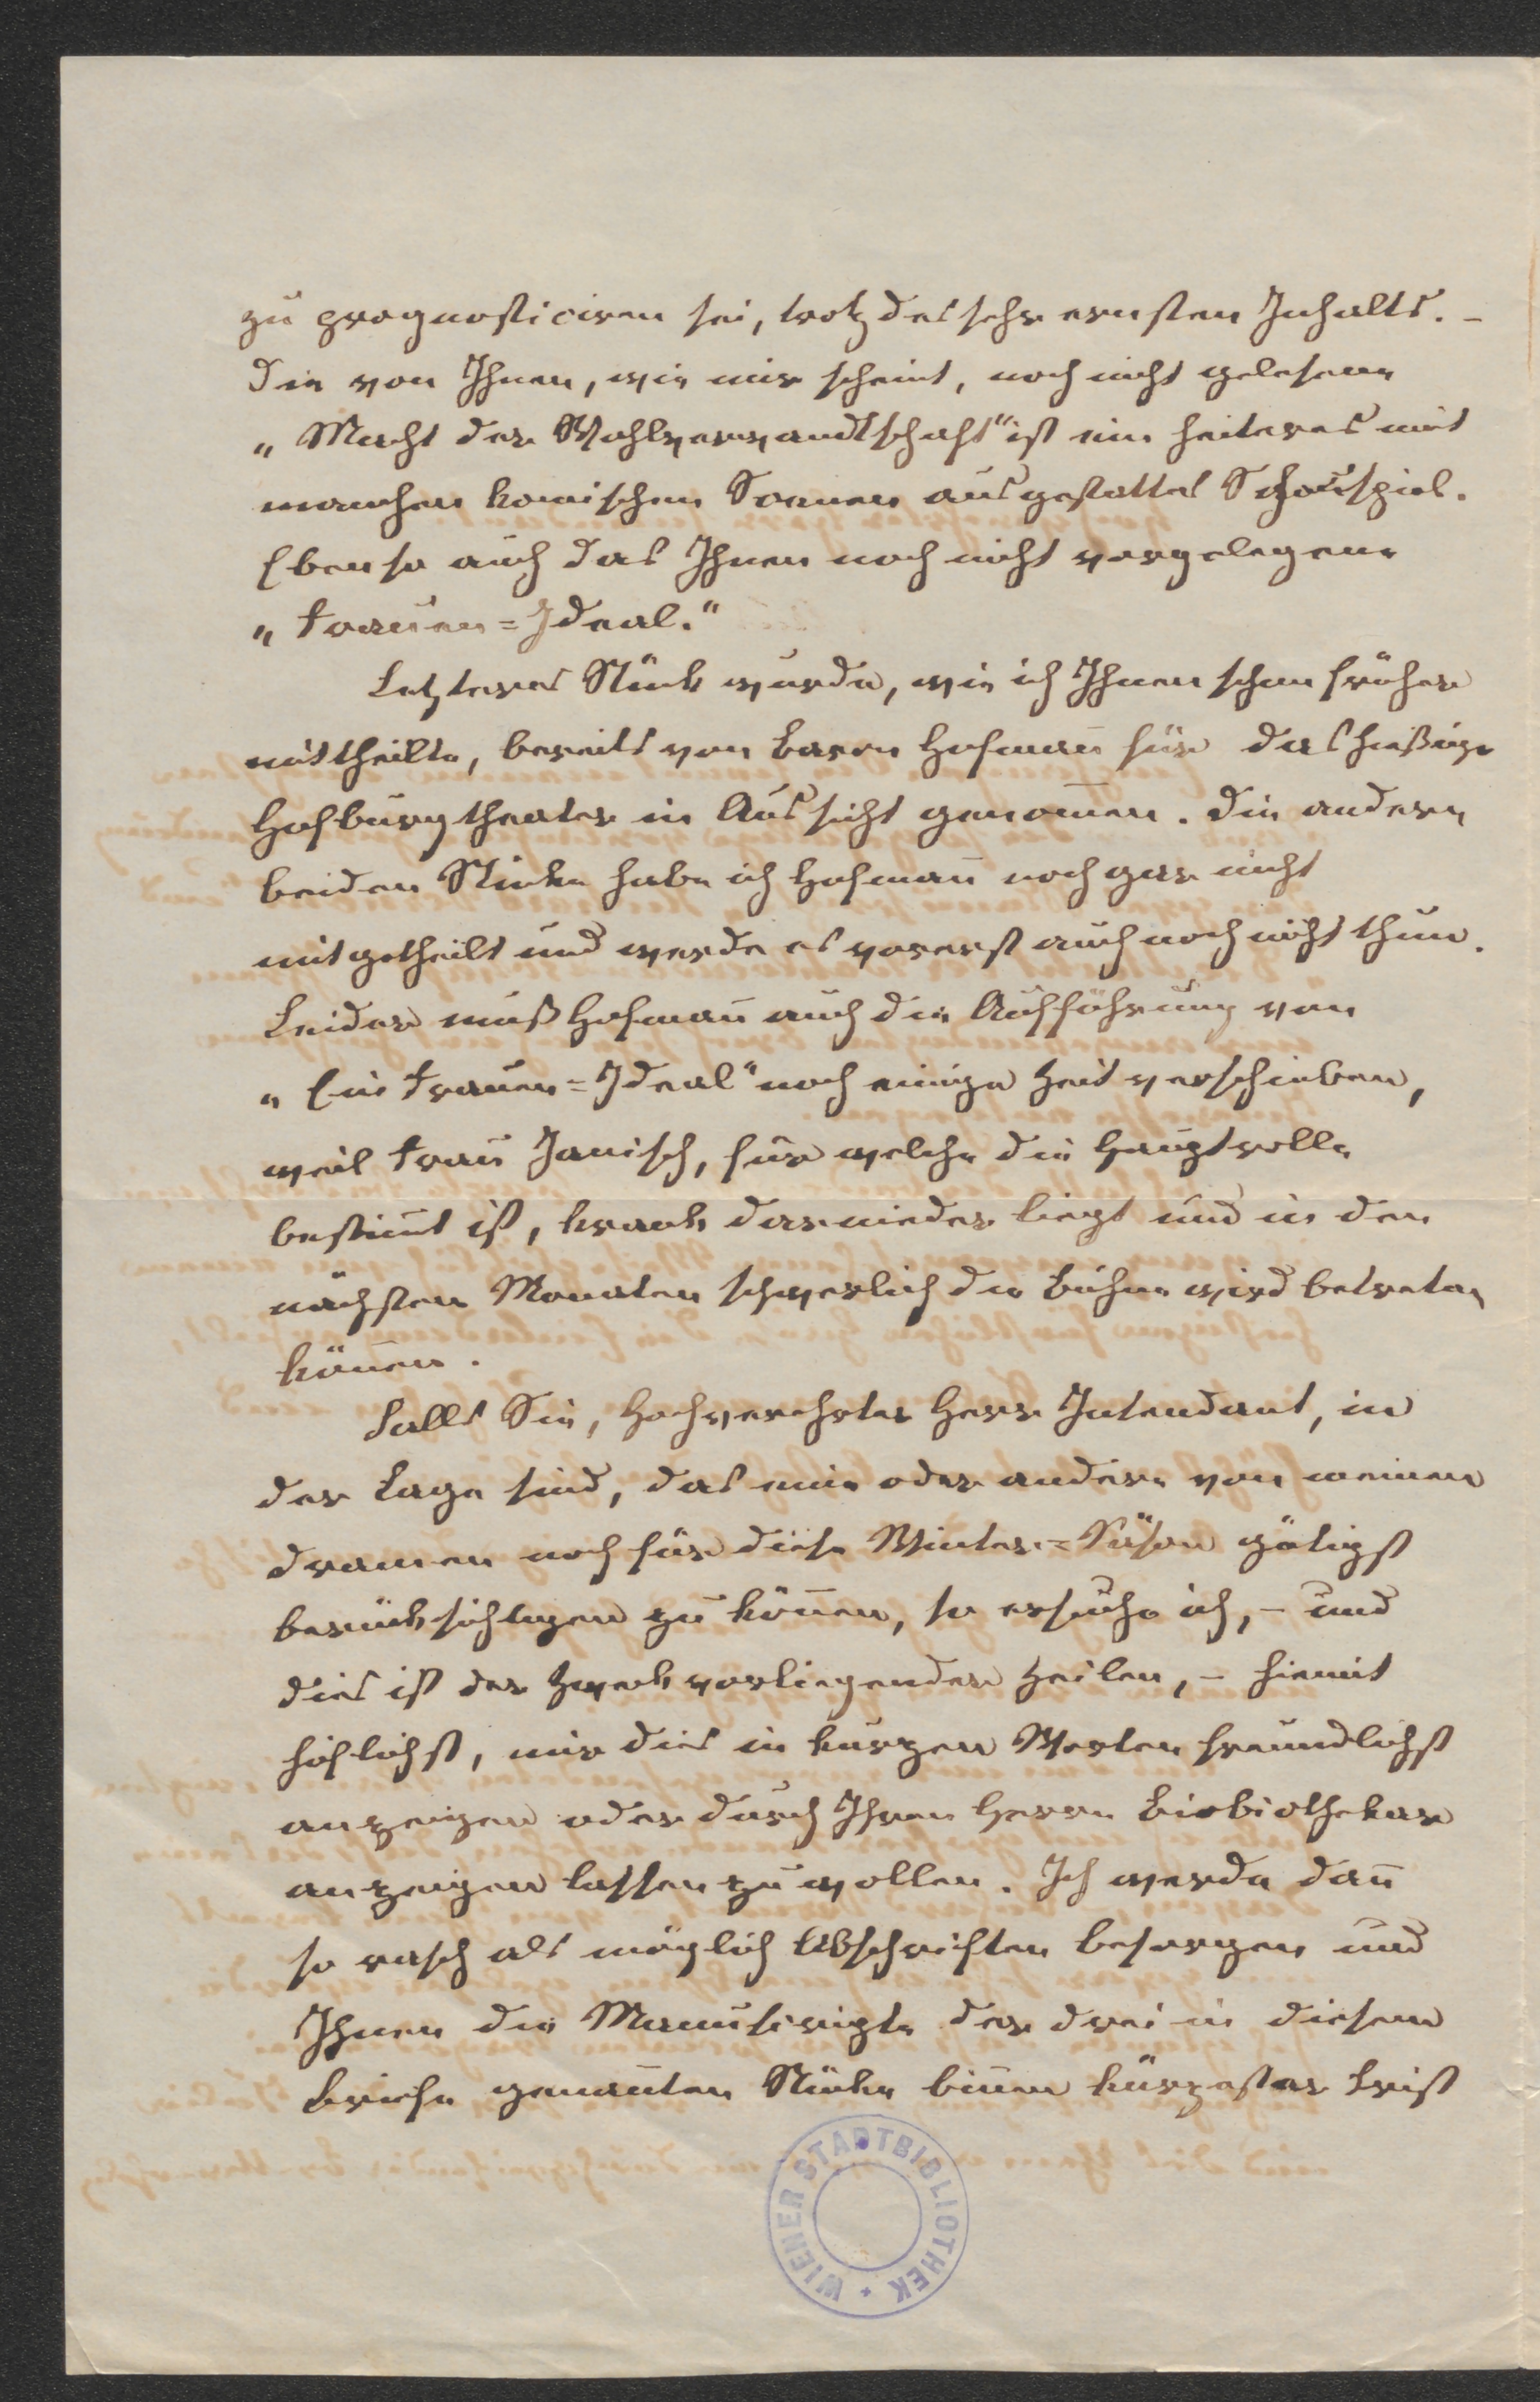 zu prognosticiren sei, trotz des sehr ernsten Inhalts. –
Die von Ihnen, wie mir scheint, noch nicht gelesene
„Macht der Wahlverwandtschaft“ ist ein heiteres mit
manchen komischen Scenen ausgestattes Schauspiel.
Ebenso auch das Ihnen noch nicht vorgelegene
„Frauen=Ideal.“
Letzteres Stück wurde, wie ich Ihnen schon früher
mittheilte, bereits von Baron Hofmañ für das hießige
Hofburgtheater in Aussicht genom̅en. Die andern
beiden Stücke habe ich Hofmañ noch gar nicht
mitgetheilt und werde es vorerst auch noch nicht thun.
Leider muß Hofmañ auch die Aufführung von
„Ein Frauen=Ideal“ noch einige Zeit verschieben,
weil Frau Janisch, für welche die Hauptrolle
bestim̅t ist, krank darnieder liegt und in den
nächsten Monaten schwerlich die Bühne wird betreten
köñen.
Falls Sie, hochverehrter Herr Intendant, in
der Lage sind, das eine oder andere von meinen
Dramen noch für diese Winter=Säson gütigst
berücksichtigen zu köñen, so ersuche ich, – und
dies ist der Zweck vorliegender Zeilen, – hiemit
höflichst, mir dies in kurzen Worten freundlichst
anzeigen oder durch Ihren Herrn Biobiothekar
anzeigen lassen zu wollen. Ich werde dañ
so rasch als möglich Abschriften besorgen und
Ihnen die Manuscripte der drei in diesem
Briefe genañten Stücke biñen kürzester Frist
WIENER STADTBIBLIOTHEK